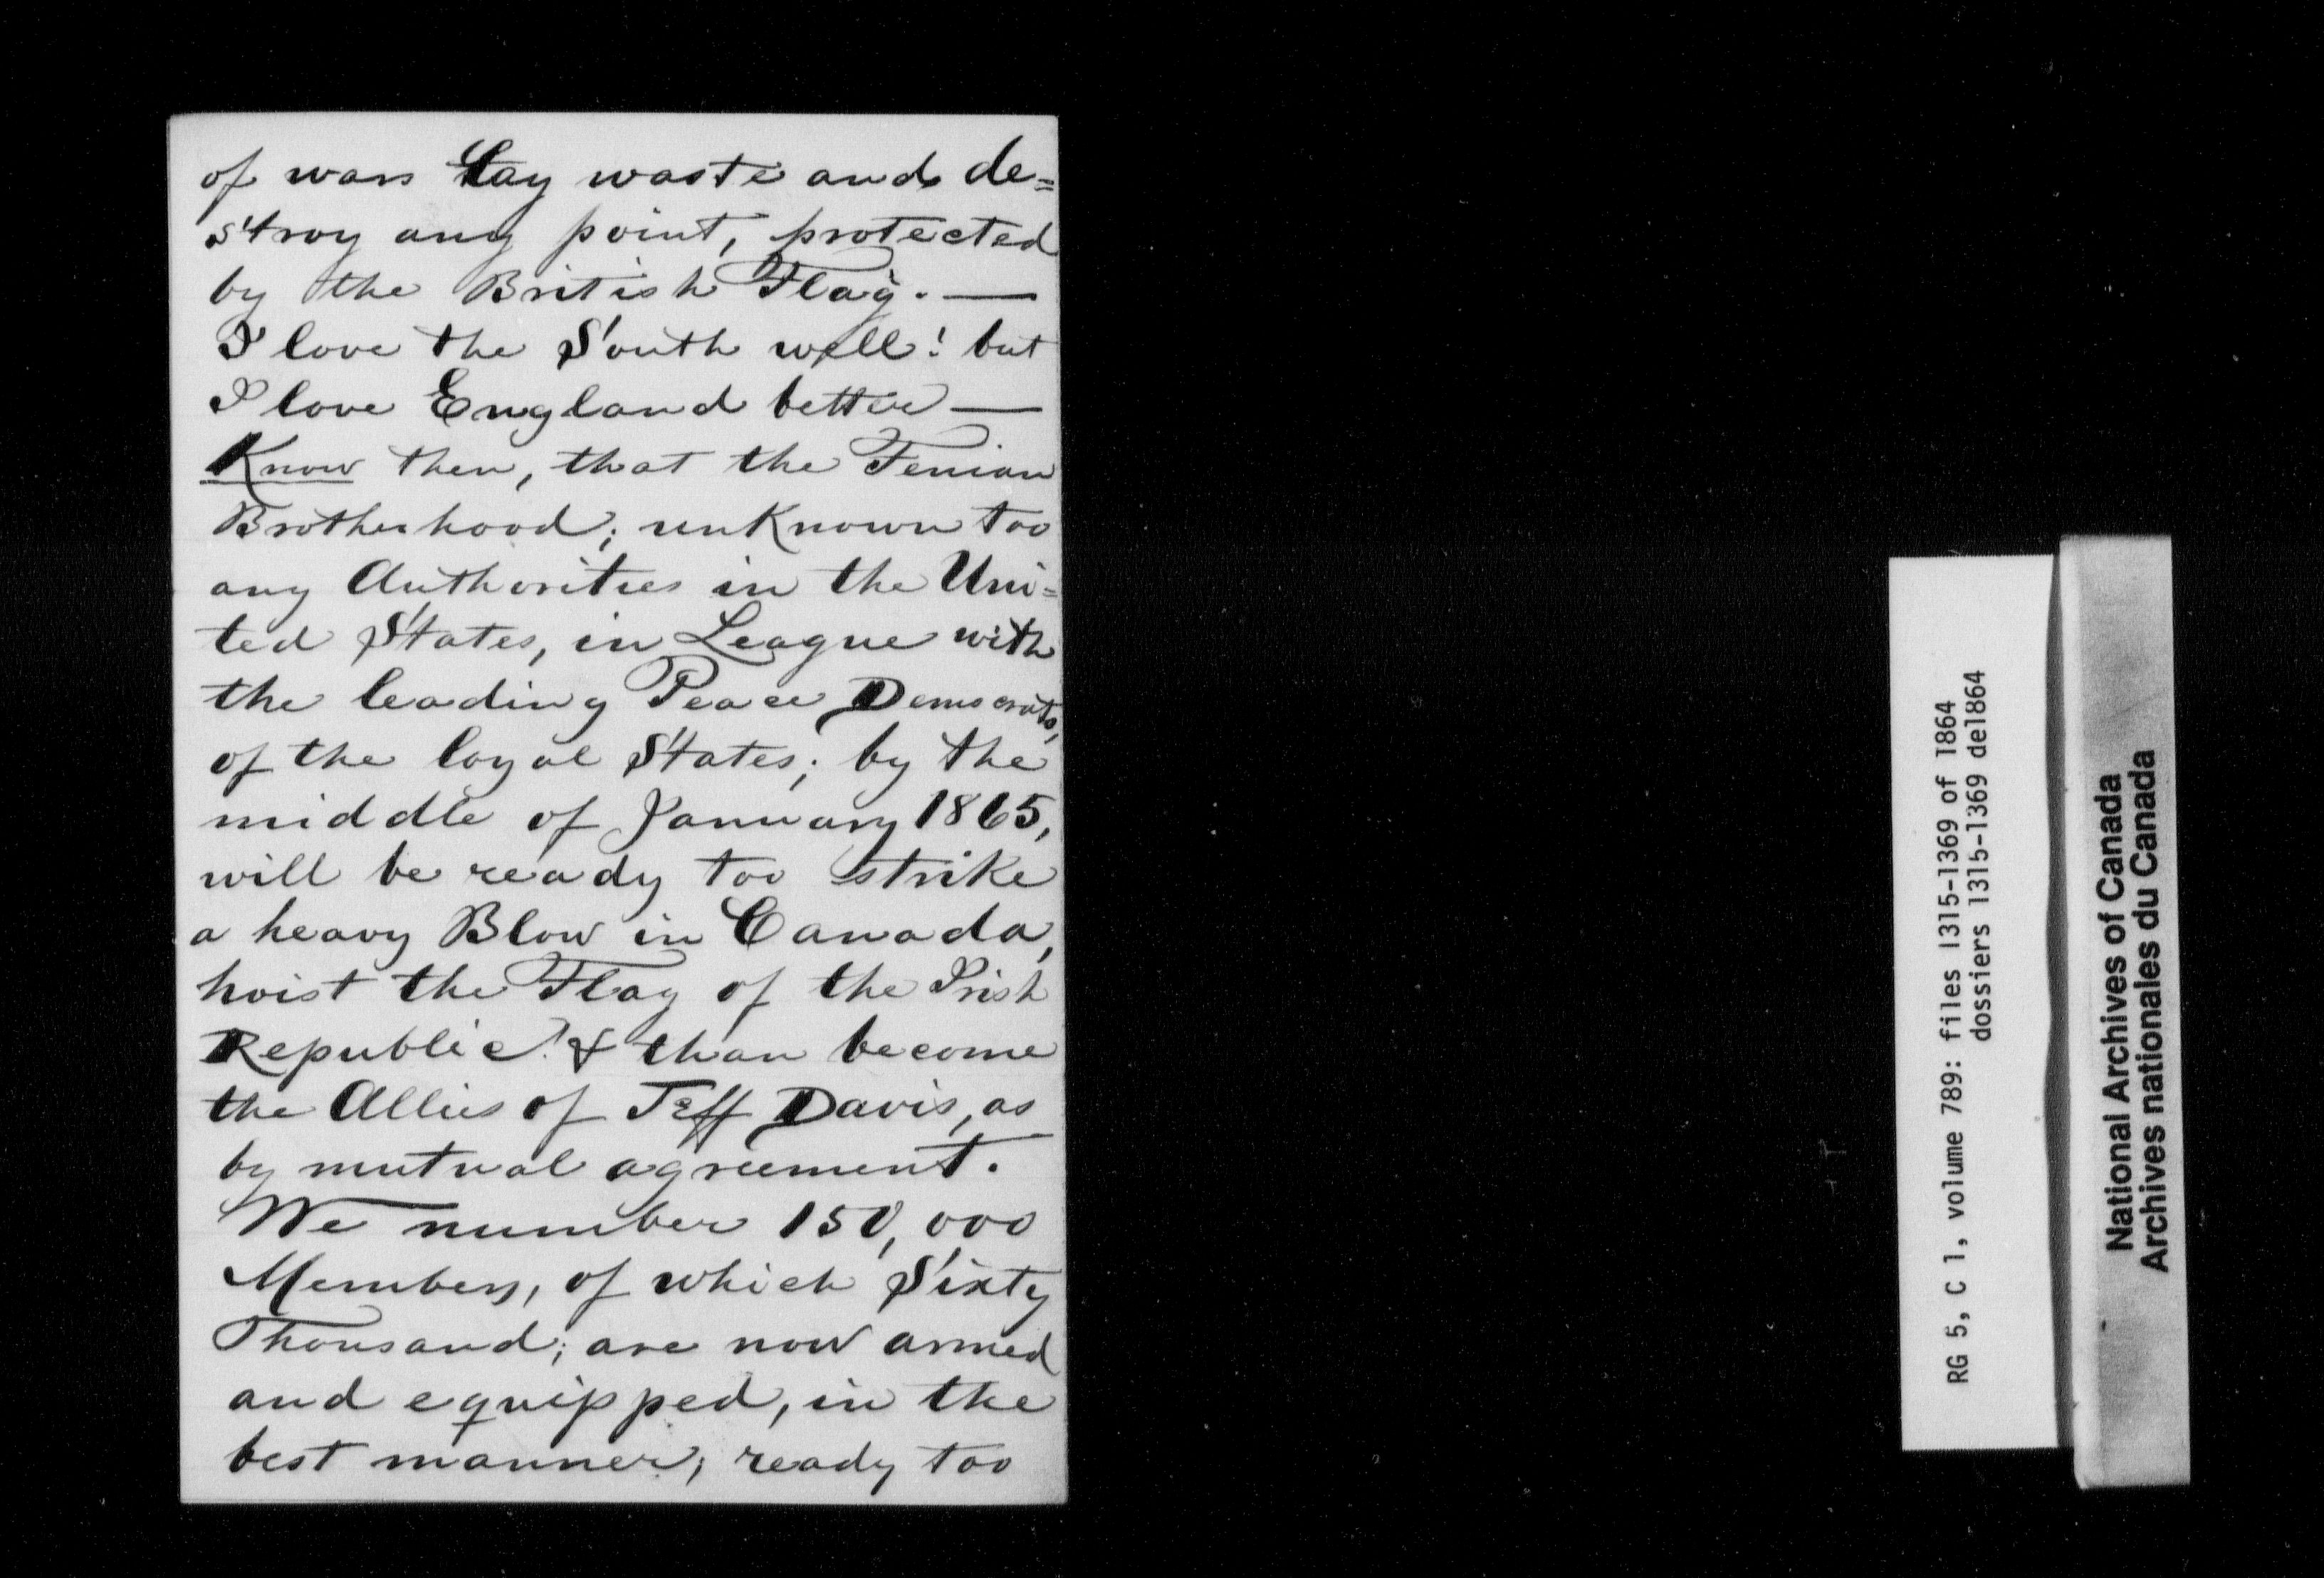 of war Lay waste and de=
stroy any point, protected
by the British Flag. —
I love the South well! but
I love England better —
Know then, that the Fenian
Brotherhood; unKnown too
any Authorities in the Uni=
ted States, in League with
the leading Peace Democrats,
of the loyal States; by the
middle of January 1865,
will be ready too strike
a heavy Blow in Canada,
hoist the Flag of the Irish
Republic! & than become
the Allies of Jeff Davis, as
by mutual agreement.
We number 150,000
Members, of which Sixty
Thousand; are now armed
and equipped, in the
best manner; ready too
RG 5, C 1, volume 789: files 1315-1369 of 1864
dossiers 1315-1369 de1864
National Archives of Canada
Archives nationales du Canada